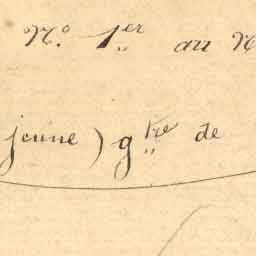 N.º 1.er au N
jeune) g.tre de